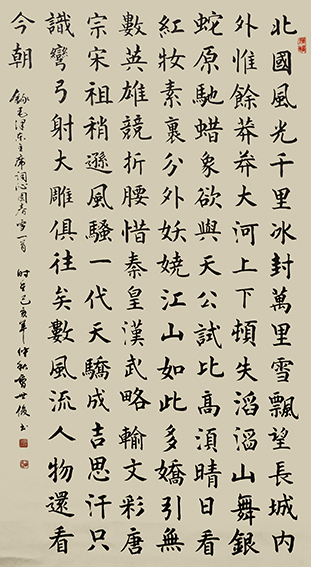 北國風光千里冰封萬里雪飄望長城内
外惟餘莽莽大河上下頓失滔滔山舞銀
蛇原馳蜡象欲與天公試比高須晴日看
紅妝素裹分外妖嬈江山如此多嬌引無
數英雄競折腰惜秦皇漢武略輸文彩唐
宗宋祖稍遜風騷一代天驕成吉思汗只
識彎弓射大雕俱往矣數風流人物還看
今朝
錄毛澤东主席詞沁園春雪一首 时在己亥年仲秋喬世俊书